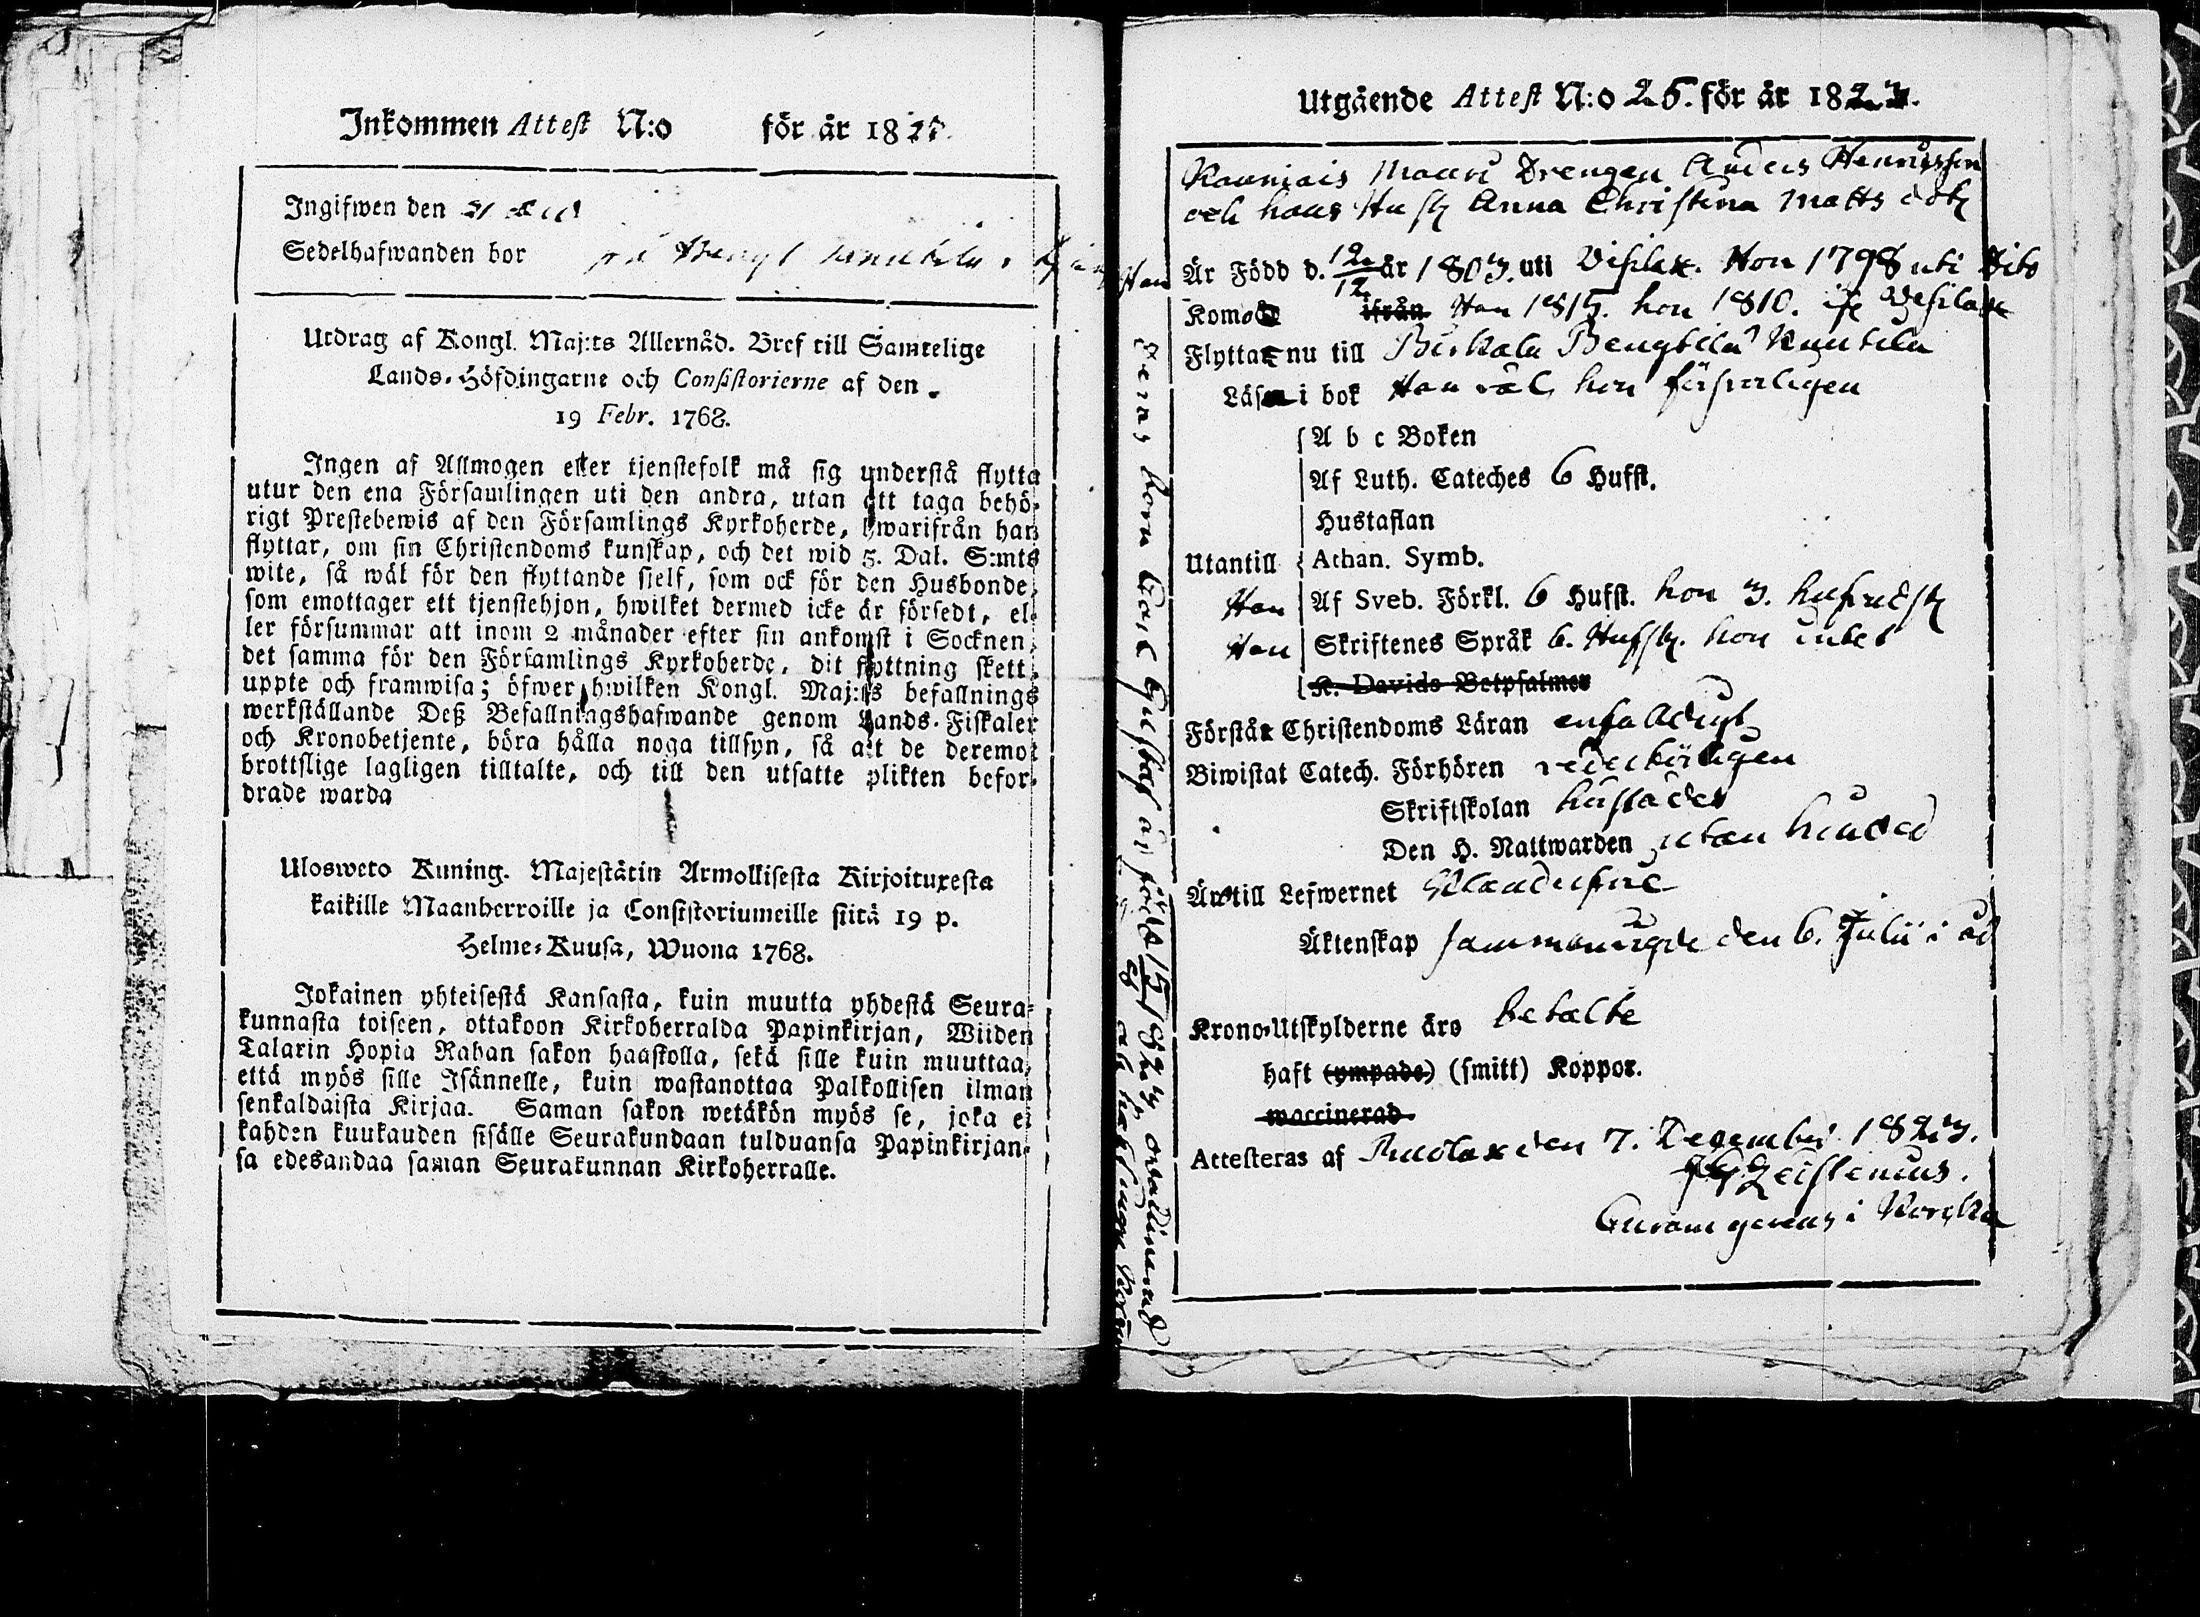 Inkommen Attest N:o för år 18
Ingifwen den
Sedelhafwanden bor på
Utdrag af Kongl. Maj:ts Allernåd. Bref till Samtelige
Lands-Höfdingarne och Consistorierne af den
19 Febr. 1768.
Ingen af Allmogen eller tjenstefolk må sig understå flytta
utur den ena Församlingen uti den andra, utan att taga behö-
rigt Prestebewis af den Församlings Kyrkoherde, hwarifrån han
flyttar, om sin Christendoms kunskap, och det wid 5. Dal. S:mts
wite, så wäl för den flyttande sjelf, som ock för den Husbonde,
som emottager ett tjenstehjon, hwilket dermed icke är försedt, el-
ler försummar att inom 2 månader efter sin ankomst i Socknen,
det samma för den Församlings Kyrkoherde, dit flyttning skett,
uppte och framwisa; öfwer hwilken Kongl. Maj:ts befallnings
werkställande Deß Befallningshafwande genom Lands-Fiskaler
och Kronobetjente, böra hålla noga tillsyn, så att de deremot
brottslige lagligen tilltalte, och till den utsatte plikten befor-
drade warda
Ulosweto Kuning. Majestätin Armollisesta Kirjoituxesta
kaikille Maanherroille ja Consistoriumeille siitä 19 p.
Helme-Kuusa, Wuona 1768.
Jokainen yhteisestä Kansasta, kuin muutta yhdestä Seura-
kunnasta toiseen, ottakoon Kirkoherralda Papinkirjan, Wiiden
Talarin Hopia Rahan sakon haastolla, sekä sille kuin muuttaa,
että myös sille Isännelle, kuin wastanottaa Palkollisen ilman
senkaldaista Kirjaa. Saman sakon wetäkön myös se, joka ei
kahden kuukauden sisälle Seurakundaan tulduansa Papinkirjan-
sa edesandaa saman Seurakunnan Kirkoherralle.
Utgående Attest N:o 25. för år 1823.
Mauri Drengen Anders Henricsson
och hans Hust Anna Christina Matts dotr
Han Är Född d. 12/12 år 1803. uti Vesilax. Hon 1798 uti Dito
Komne ifrån Han 1815. hon 1810. ifr Vesilax
Flytta nu till Birkala Bengtilä Knutila
Läsa i bok Han väl, hon försvarligen
A b c Boken
Af Luth. Cateches 6 Hufst.
Hustaflan
Utantill Athan. Symb.
Han Af Sveb. Förkl. 6 Hufst. hon 3. hufvudst
Han Skriftenes Språk 6. Hufst. hon intet
K. Davids Betpsalmer
Förstå Christendoms Läran enfaldigt
Biwistat Catech. Förhören vederbörligen
Skriftskolan
Den H. Nattwarden utan hinder
Är till Lefwernet
Äktenskap sammanvigde den 6. Julii i år
Krono-Utskylderne äro betalte
haft (ympade) (smitt) Koppor.
waccinerad
Attesteras af den 7. December 1823.
i
Deras barn Carl Gustaf är född 15/8 1823, ovaccinerad